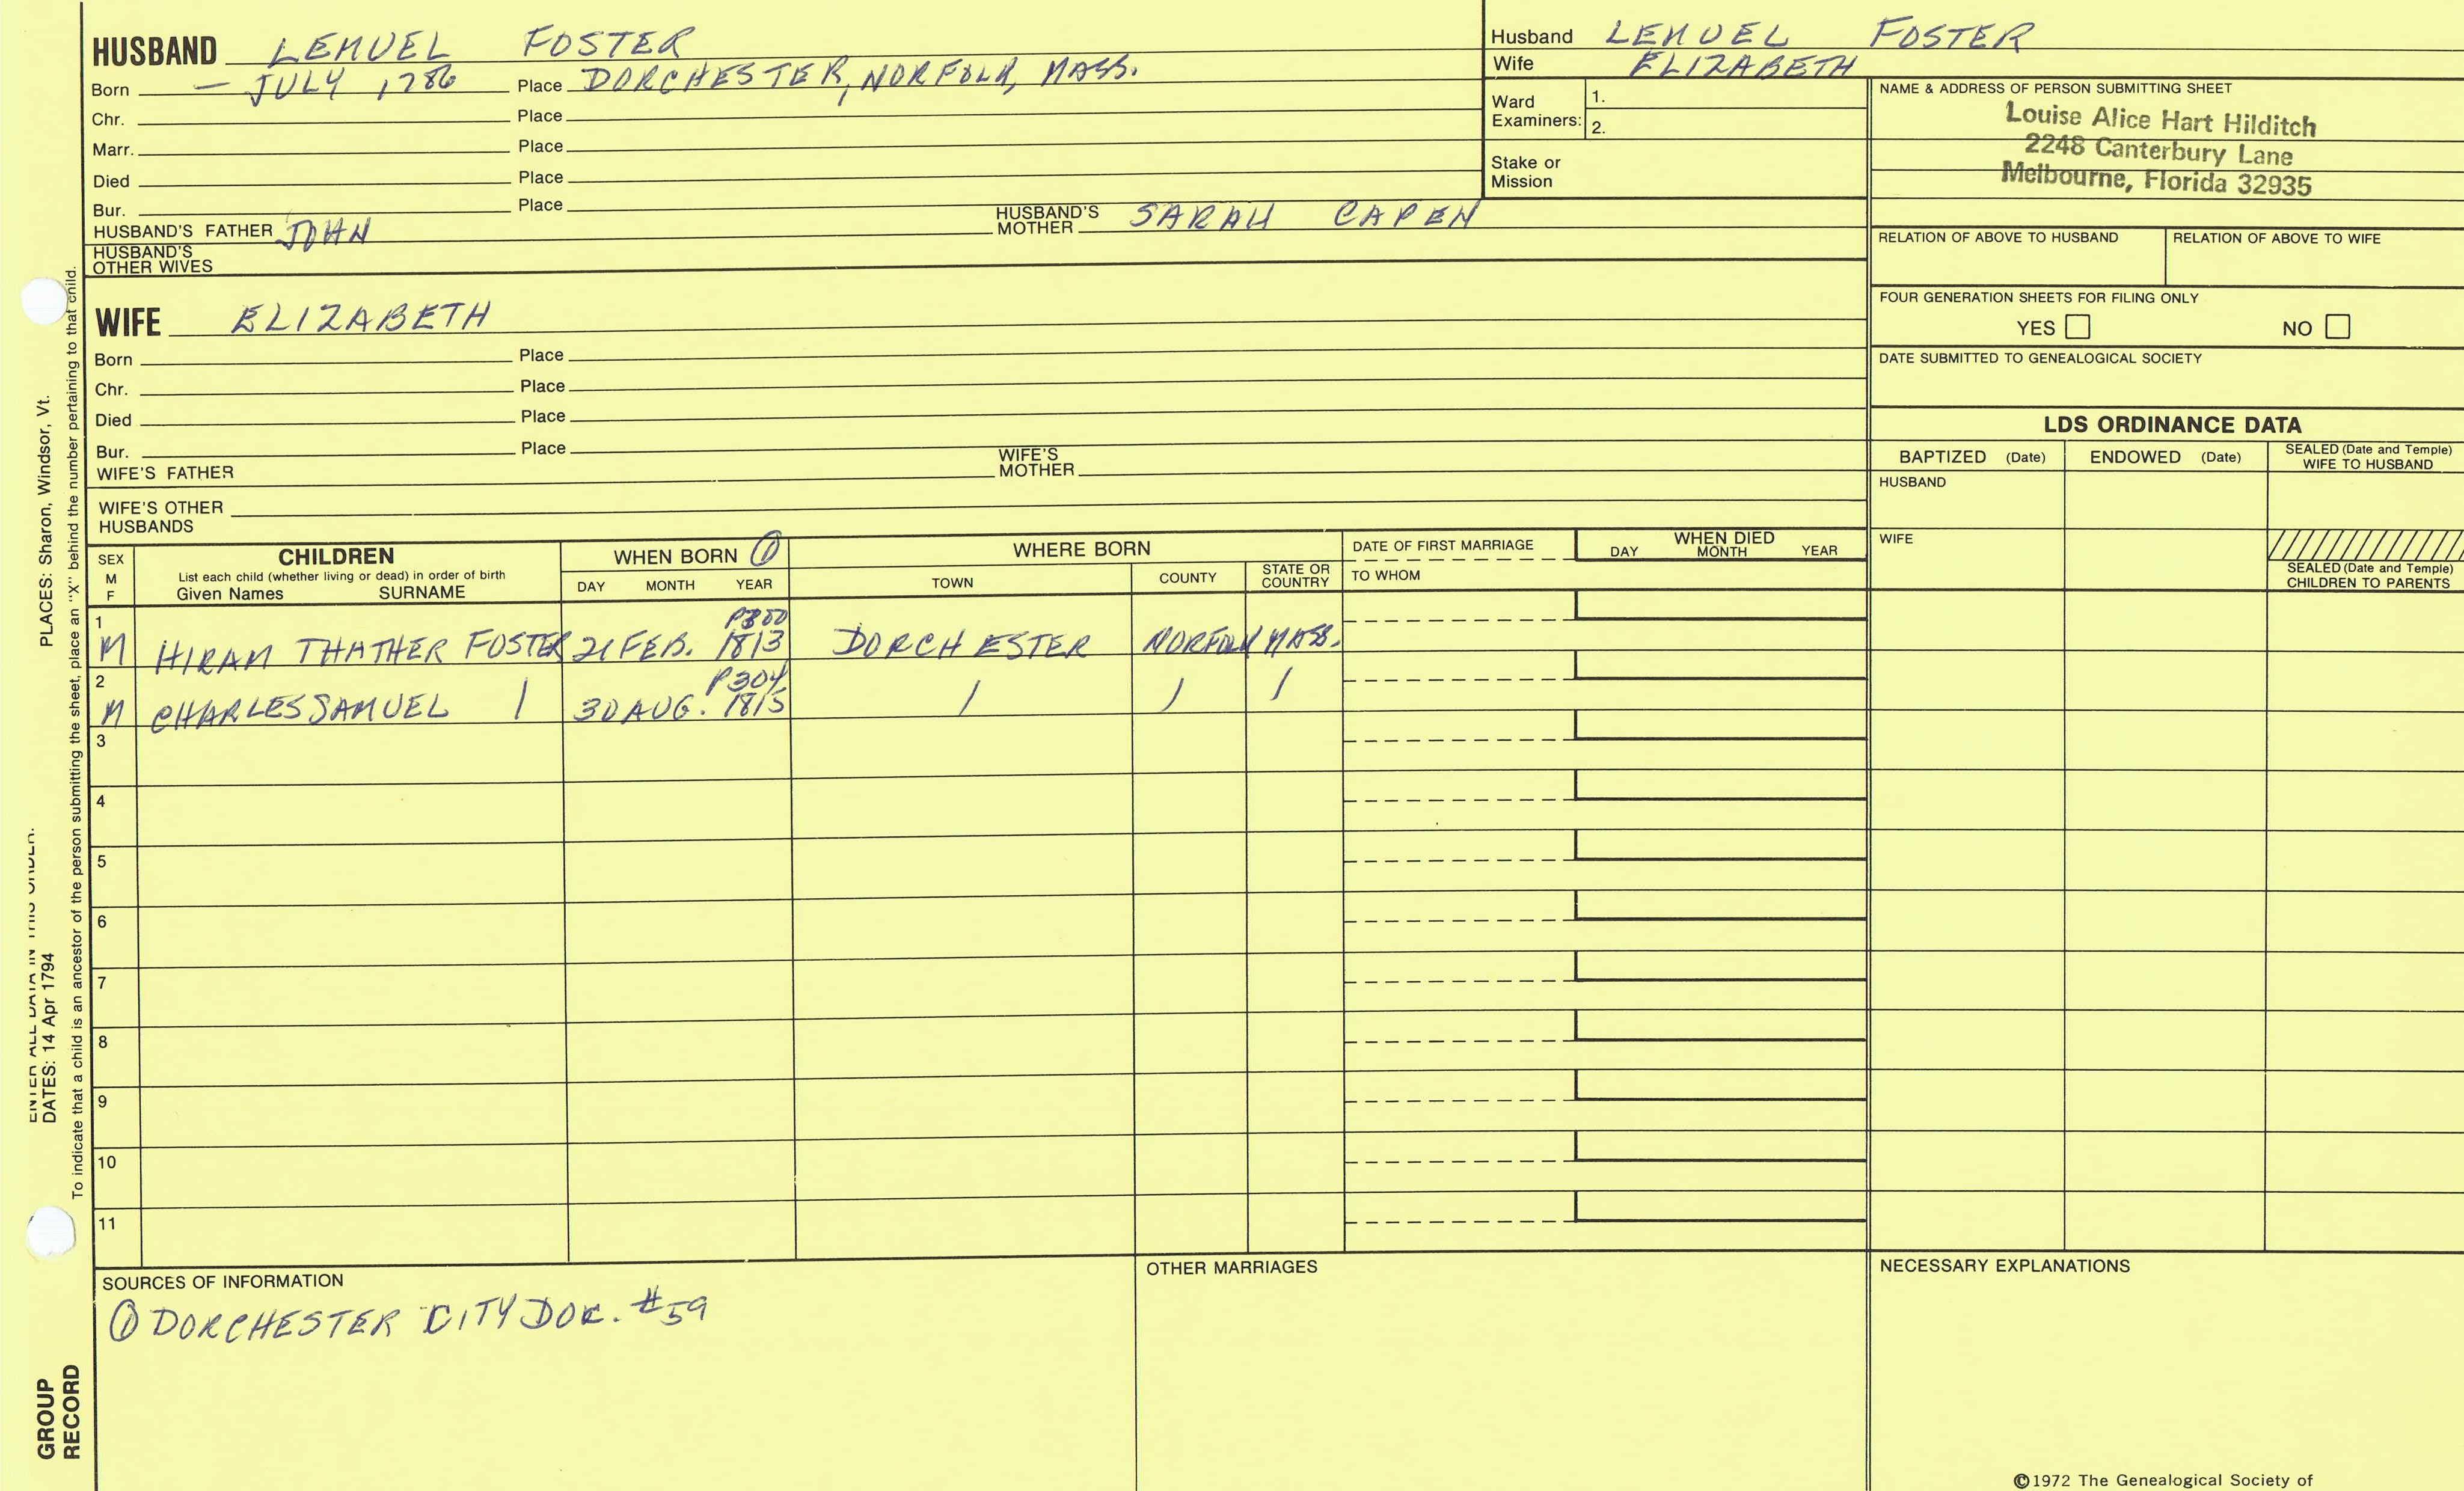 HUSBAND LEMUEL FOSTER
Born — JULY 1786 Place DORCHESTER, NORFOLK, MASS.
Chr. Place
Marr. Place
Died Place
Bur. Place
HUSBAND'S FATHER JOHN HUSBAND'S MOTHER SARAH CAPEN
HUSBAND'S OTHER WIVES
WIFE ELIZABETH
Born Place
Chr. Place
Died Place
Bur. Place
WIFE'S FATHER WIFE'S MOTHER
WIFE'S OTHER HUSBANDS
Husband LEMUEL FOSTER
Wife ELIZABETH
Ward Examiners: 1. 2.
Stake or Mission
NAME & ADDRESS OF PERSON SUBMITTING SHEET
Louise Alice Hart Hilditch
2248 Canterbury Lane
Melbourne, Florida 32935
RELATION OF ABOVE TO HUSBAND RELATION OF ABOVE TO WIFE
FOUR GENERATION SHEETS FOR FILING ONLY
YES NO
DATE SUBMITTED TO GENEALOGICAL SOCIETY
LDS ORDINANCE DATA
BAPTIZED (Date) ENDOWED (Date) SEALED (Date and Temple) WIFE TO HUSBAND
HUSBAND
WIFE
SEALED (Date and Temple) CHILDREN TO PARENTS
SEX M F CHILDREN WHEN BORN ① WHERE BORN DATE OF FIRST MARRIAGE WHEN DIED
List each child (whether living or dead) in order of birth
Given Names SURNAME DAY MONTH YEAR TOWN COUNTY STATE OR COUNTRY TO WHOM DAY MONTH YEAR
1 P300
M HIRAM THATHER FOSTER 21 FEB. 1813 DORCHESTER NORFOLK MASS.
2 P304
M CHARLES SAMUEL / 30 AUG. 1815 / / /
3
4
5
6
7
8
9
10
11
SOURCES OF INFORMATION
① DORCHESTER CITY DOC. #59
OTHER MARRIAGES
NECESSARY EXPLANATIONS
©1972 The Genealogical Society of
ENTER ALL DATA IN THIS ORDER:
DATES: 14 Apr 1794 PLACES: Sharon, Windsor, Vt.
To indicate that a child is an ancestor of the person submitting the sheet, place an "X" behind the number pertaining to that child.
GROUP
RECORD